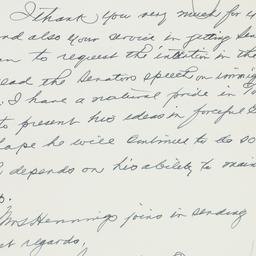 I thank you very much for y
nd also your service in getting Sen
to request the intention in th
ead the Senators speech on immig
I have a natural pride in
to present his ideas in forceful
hope he will continue to be so
depends on his ability to main
Mrs Hennings joins in sending
st regards,